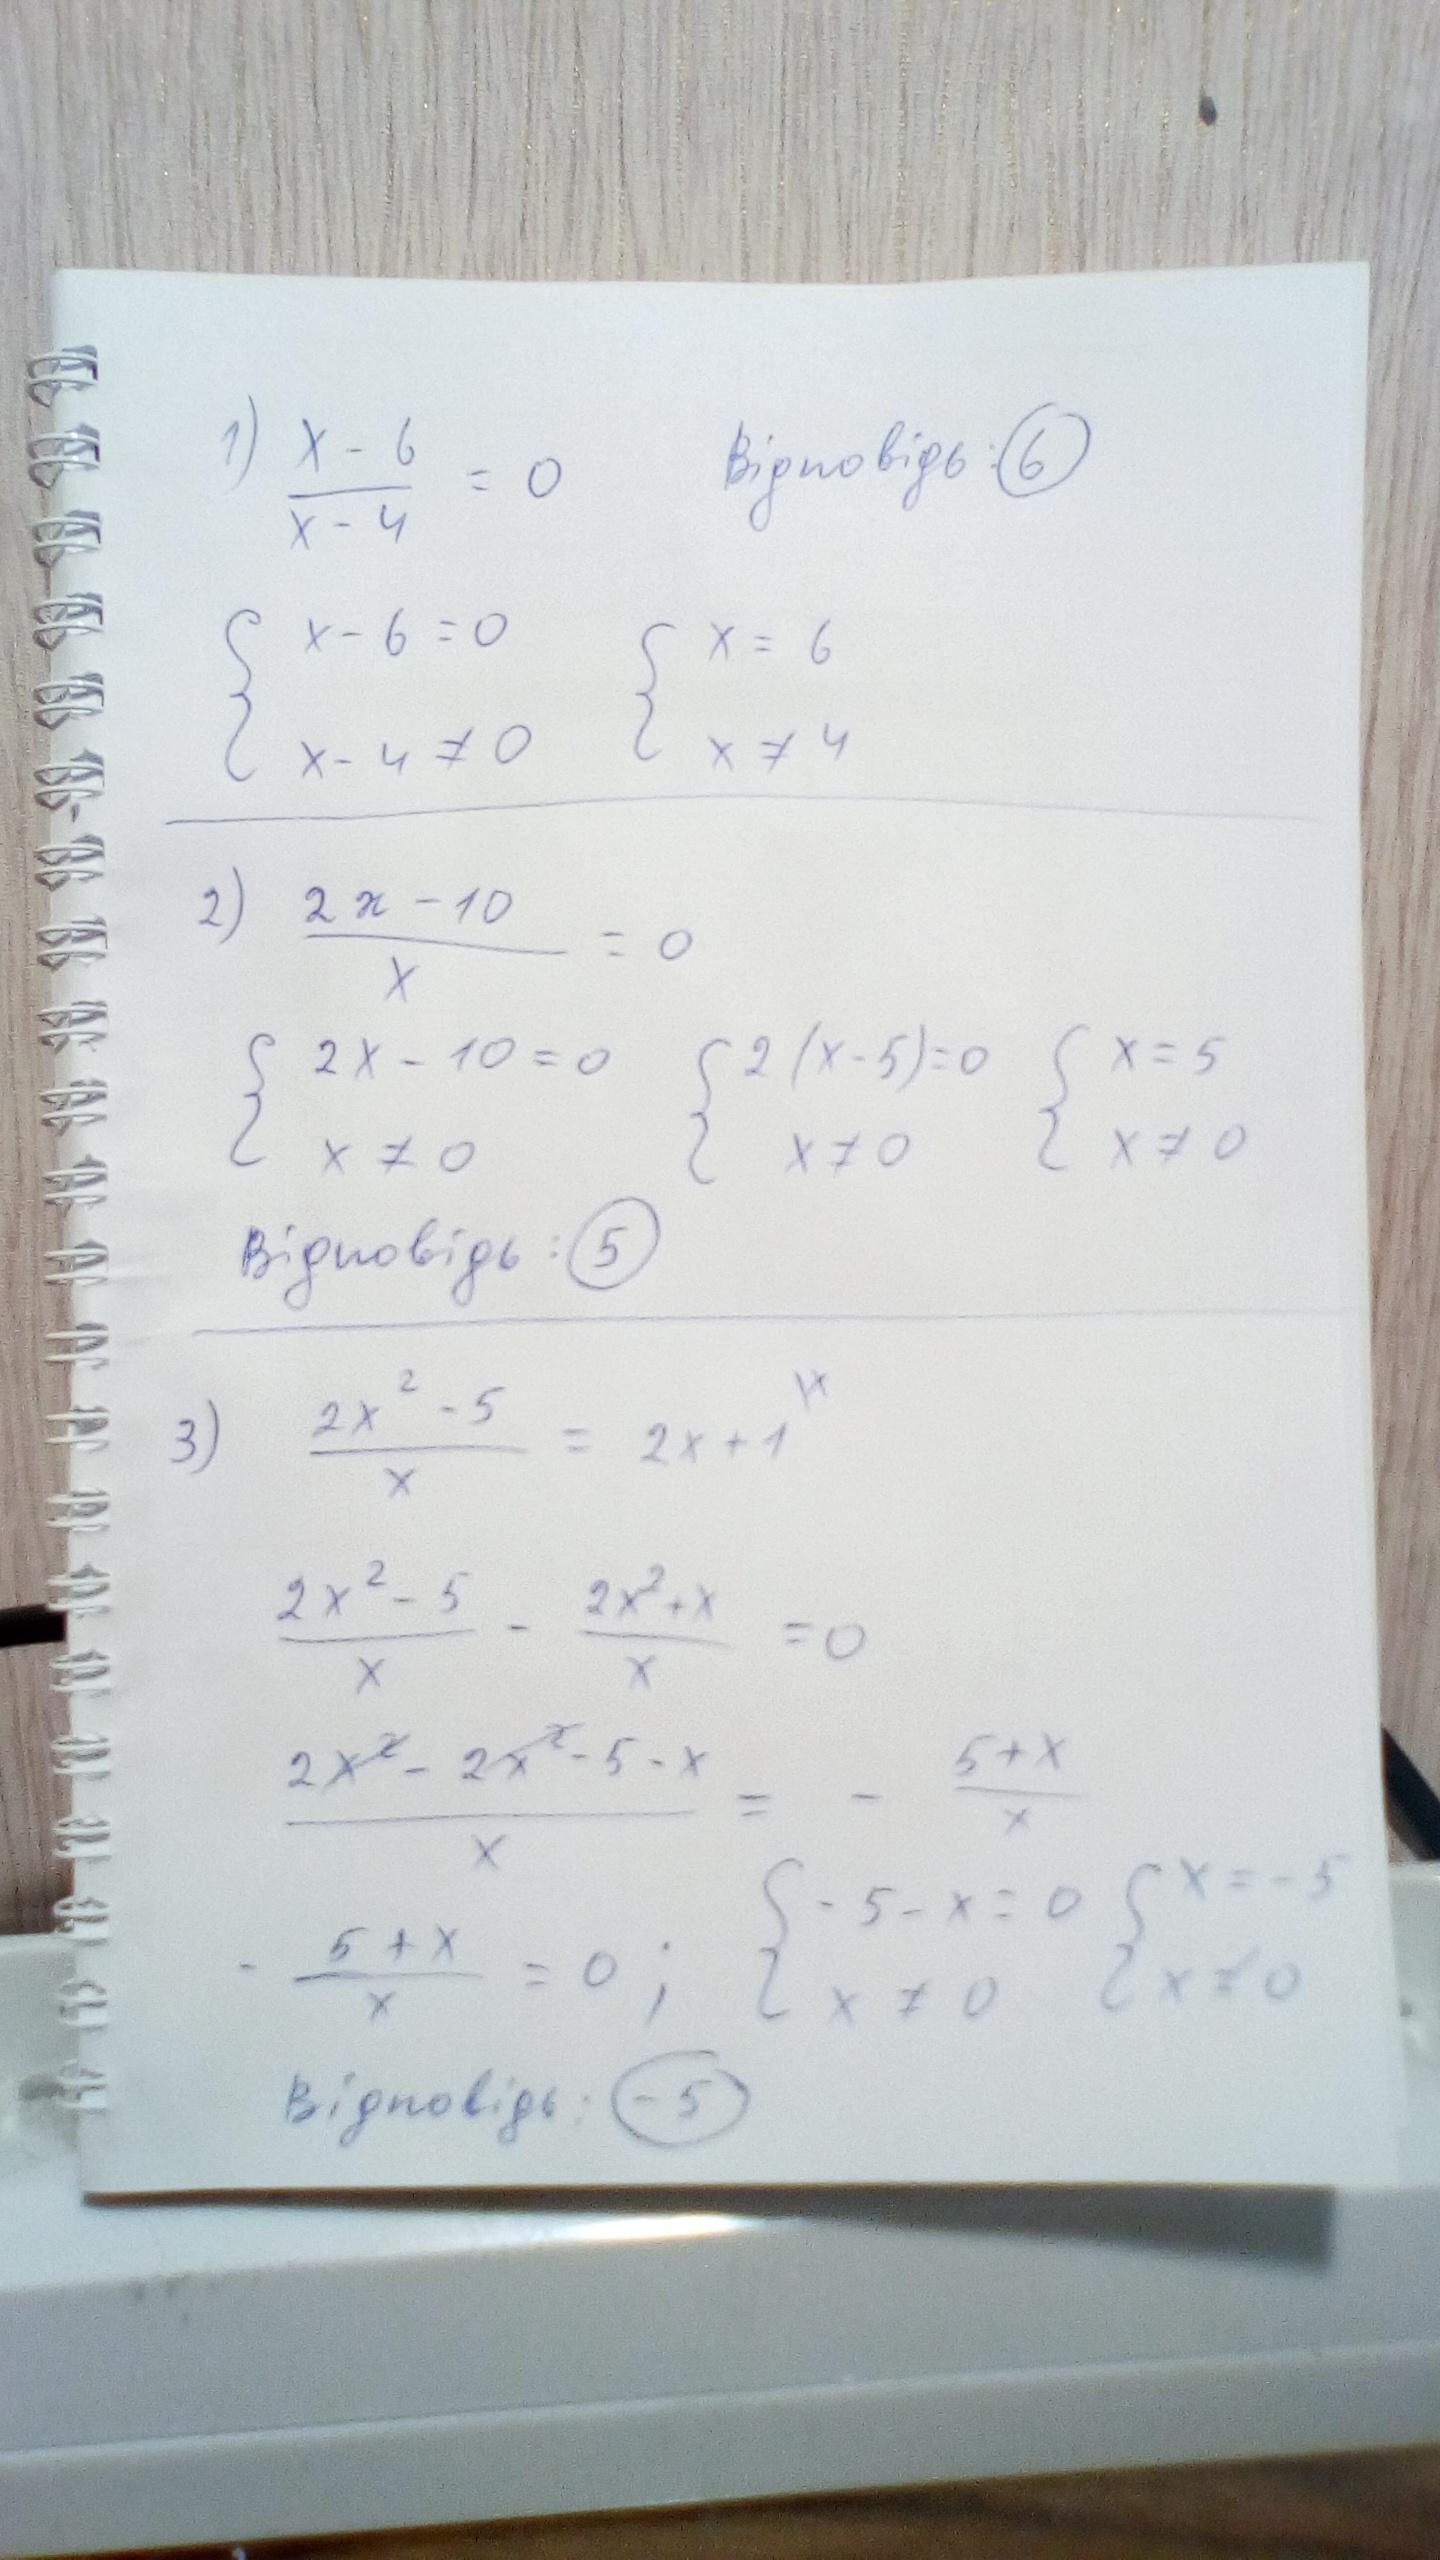 1) (x - 6)/(x - 4) = 0 Відповідь: 6
{ x - 6 = 0 { x = 6
{ x - 4 ≠ 0 { x ≠ 4
2) (2x - 10)/x = 0
{ 2x - 10 = 0 { 2(x - 5) = 0 { x = 5
{ x ≠ 0 { x ≠ 0 { x ≠ 0
Відповідь: 5
3) (2x² - 5)/x = 2x + 1 \x
(2x² - 5)/x - (2x² + x)/x = 0
(2x² - 2x² - 5 - x)/x = - (5 + x)/x
- (5 + x)/x = 0 ; { - 5 - x = 0 { x = -5
{ x ≠ 0 { x ≠ 0
Відповідь: -5